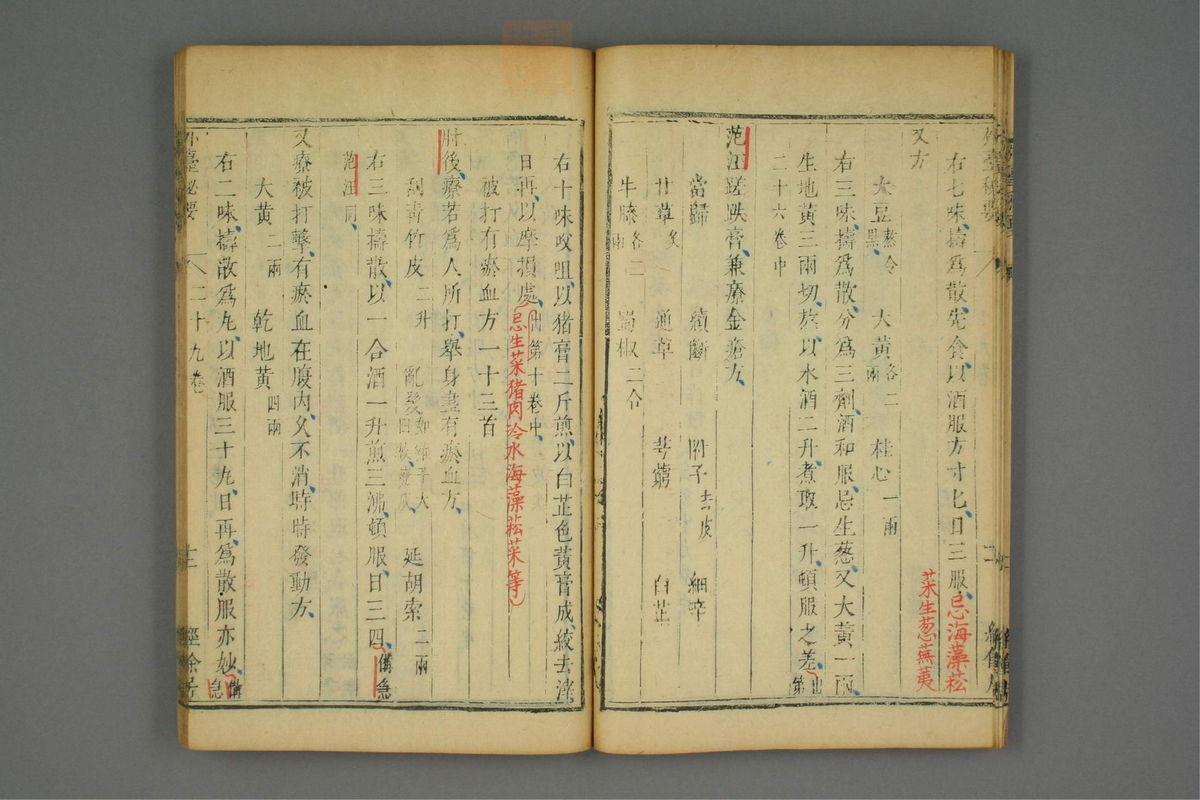 右七味擣爲散先食以酒服方寸匕日三服忌海藻菘
菜生葱蕪荑
又方
大豆熬令黑 大黃各二兩 桂心一兩
右三味擣爲散分爲三劑酒和服忌生葱又大黃一兩
生地黃三兩切熬以水酒二升煮取一升頓服之差出第
二十六卷中
范汪蹉跌膏兼療金瘡方
當歸 續斷 附子去皮 細辛
甘草炙 通草 芎藭 白芷
牛膝各二兩 蜀椒二合
右十味㕮咀以猪膏二斤煎以白芷色黃膏成絞去滓
日再以摩損處出第十卷中忌生菜猪肉冷水海藻菘菜等
被打有瘀血方一十三首
肘後療若爲人所打舉身盡有瘀血方
刮青竹皮二升 亂髮如雞子大四枚燒灰 延胡索二兩
右三味擣散以一合酒一升煎三沸頓服日三四備急
范汪同
又療被打擊有瘀血在腹內久不消時時發動方
大黃二兩 乾地黃四兩
右二味擣散爲丸以酒服三十九日再爲散服亦妙備急
外臺秘要 二十九卷 十二 經餘居